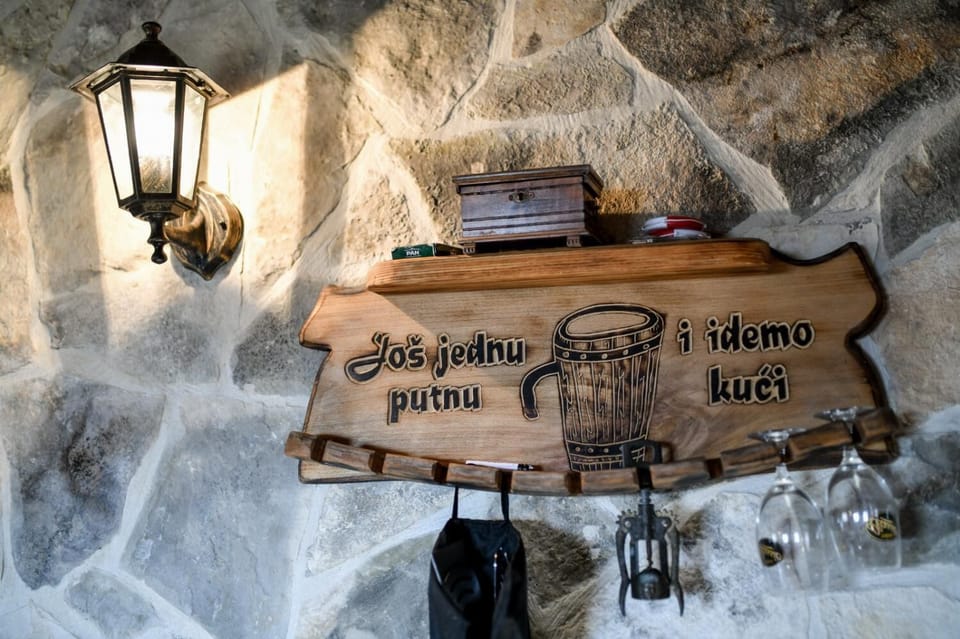 Još jednu
putnu
i idemo
kući
PAN